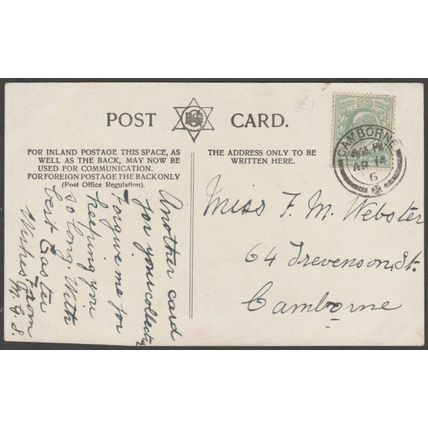 POST CARD.
FOR INLAND POSTAGE THIS SPACE, AS
WELL AS THE BACK, MAY NOW BE
USED FOR COMMUNICATION.
FOR FOREIGN POSTAGE THE BACK ONLY
(Post Office Regulation).
THE ADDRESS ONLY TO BE
WRITTEN HERE.
Another card
for your collection
Forgive me for
keeping you
so long. With
best Easter
Wishes from
CAMBORNE
AP 14
6
Miss F. M. Webster
64 Trevenson St.
Camborne